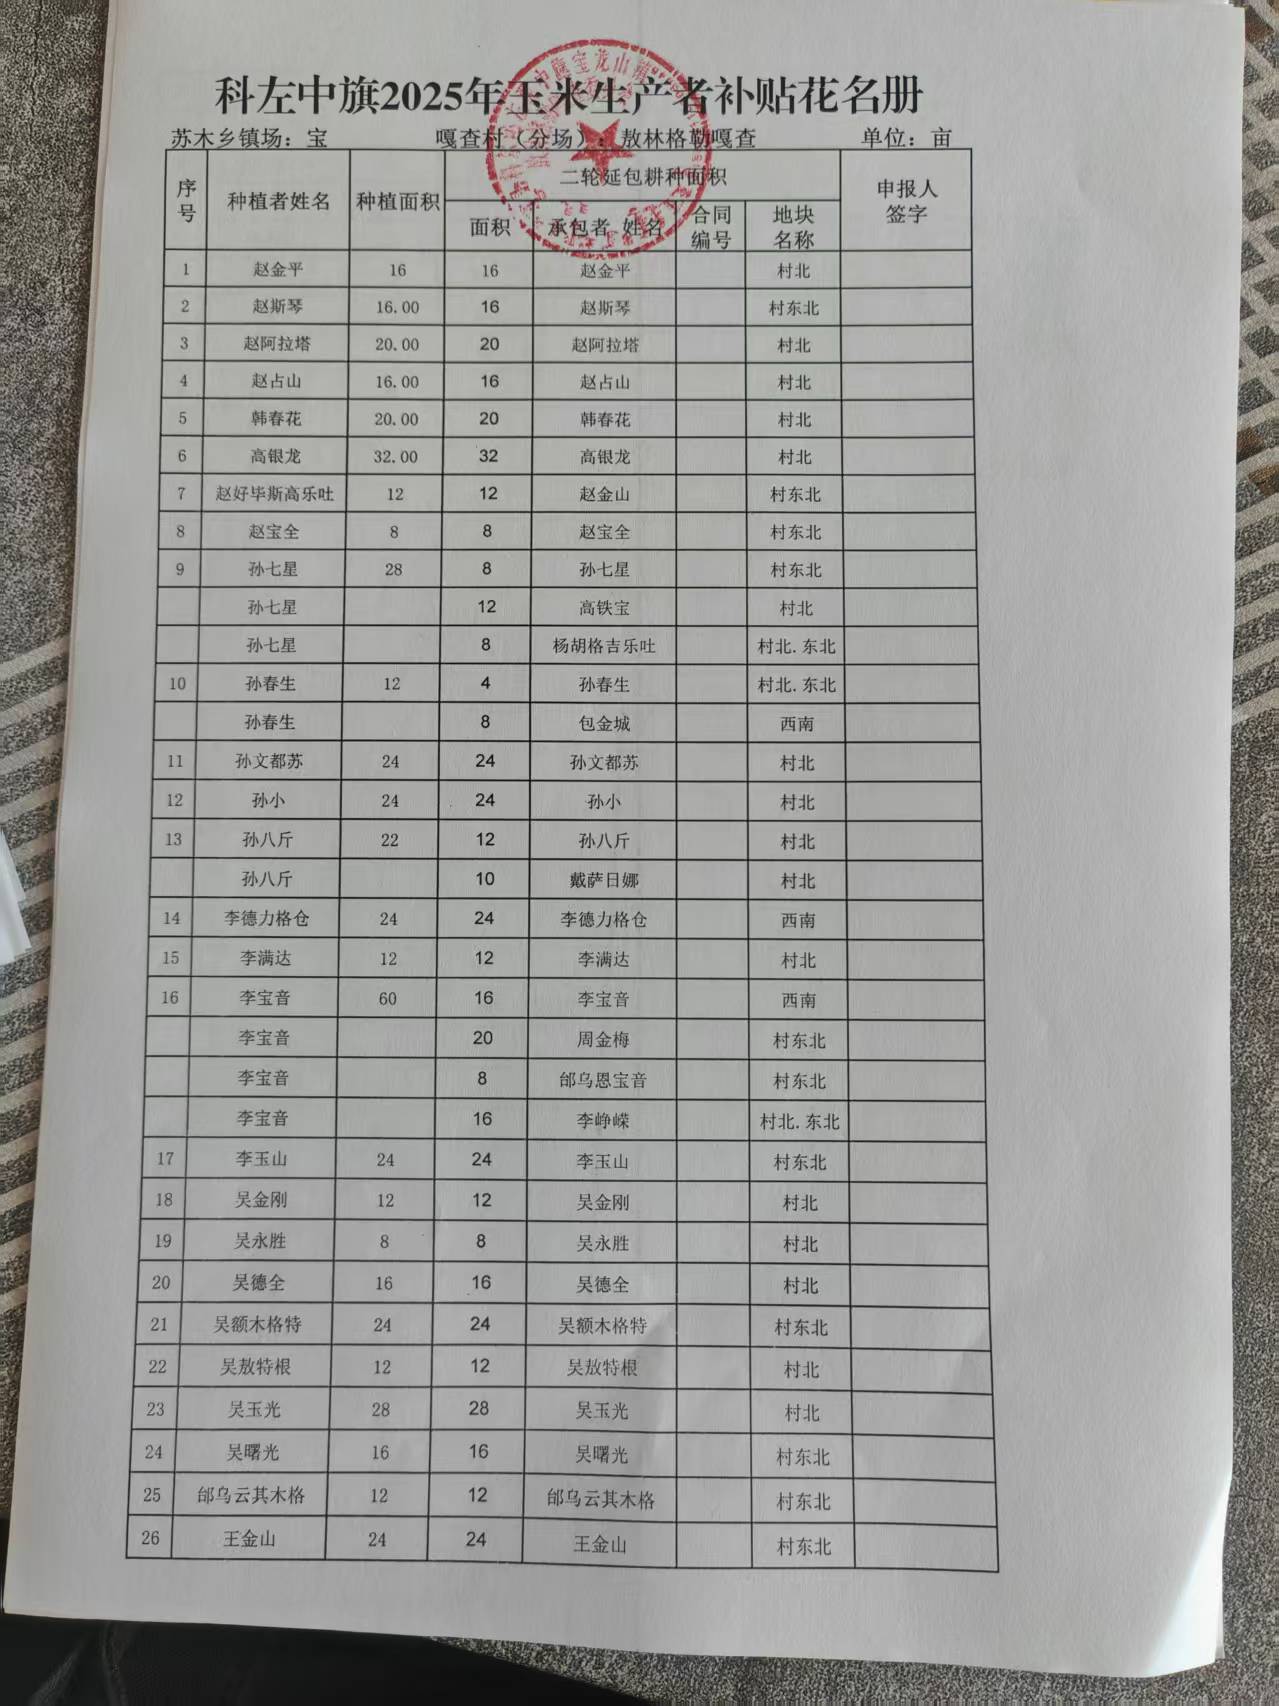 科左中旗2025年玉米生产者补贴花名册
苏木乡镇场：宝 嘎查村（分场）：敖林格勒嘎查 单位：亩
序号 种植者姓名 种植面积 二轮延包耕种面积 申报人签字
面积 承包者 姓名 合同编号 地块名称
1 赵金平 16 16 赵金平 村北
2 赵斯琴 16.00 16 赵斯琴 村东北
3 赵阿拉塔 20.00 20 赵阿拉塔 村北
4 赵占山 16.00 16 赵占山 村北
5 韩春花 20.00 20 韩春花 村北
6 高银龙 32.00 32 高银龙 村北
7 赵好毕斯高乐吐 12 12 赵金山 村东北
8 赵宝全 8 8 赵宝全 村东北
9 孙七星 28 8 孙七星 村东北
孙七星 12 高铁宝 村北
孙七星 8 杨胡格吉乐吐 村北.东北
10 孙春生 12 4 孙春生 村北.东北
孙春生 8 包金城 西南
11 孙文都苏 24 24 孙文都苏 村北
12 孙小 24 24 孙小 村北
13 孙八斤 22 12 孙八斤 村北
孙八斤 10 戴萨日娜 村北
14 李德力格仓 24 24 李德力格仓 西南
15 李满达 12 12 李满达 村北
16 李宝音 60 16 李宝音 西南
李宝音 20 周金梅 村东北
李宝音 8 邰乌恩宝音 村东北
李宝音 16 李峥嵘 村北.东北
17 李玉山 24 24 李玉山 村东北
18 吴金刚 12 12 吴金刚 村北
19 吴永胜 8 8 吴永胜 村北
20 吴德全 16 16 吴德全 村北
21 吴额木格特 24 24 吴额木格特 村东北
22 吴敖特根 12 12 吴敖特根 村北
23 吴玉光 28 28 吴玉光 村北
24 吴曙光 16 16 吴曙光 村东北
25 邰乌云其木格 12 12 邰乌云其木格 村东北
26 王金山 24 24 王金山 村东北